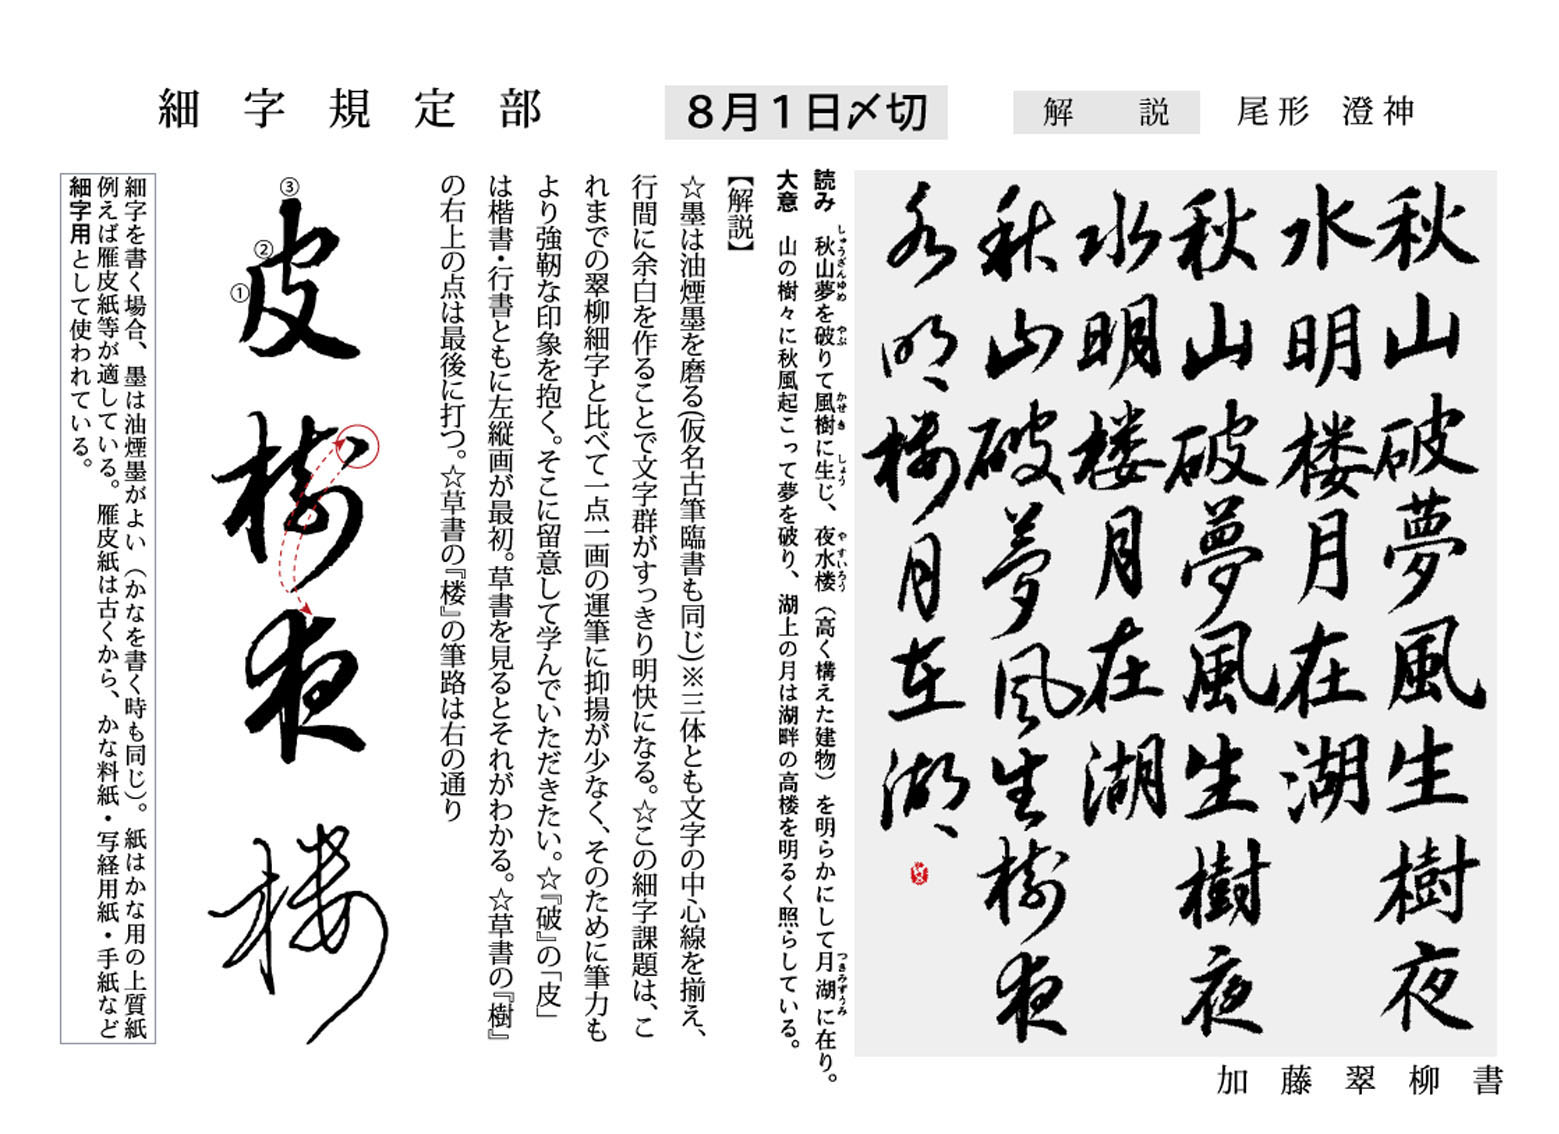 細字規定部
8月1日〆切
解説
尾形 澄神
秋山破夢風生樹夜
水明楼月在湖
秋山破夢風生樹夜
水明楼月在湖
秋山破夢風生樹夜
水明楼月在湖
加藤翠柳書
読み 秋山夢を破りて風樹に生じ、夜水楼（高く構えた建物）を明らかにして月湖に在り。
しゅうざんゆめ やぶ かぜき しょう やすいろう つきみずうみ
大意 山の樹々に秋風起こって夢を破り、湖上の月は湖畔の高楼を明るく照らしている。
【解説】
☆墨は油煙墨を磨る(仮名古筆臨書も同じ)※三体とも文字の中心線を揃え、
行間に余白を作ることで文字群がすっきり明快になる。☆この細字課題は、こ
れまでの翠柳細字と比べて一点一画の運筆に抑揚が少なく、そのために筆力も
より強靭な印象を抱く。そこに留意して学んでいただきたい。☆『破』の「皮」
は楷書・行書ともに左縦画が最初。草書を見るとそれがわかる。☆草書の『樹』
の右上の点は最後に打つ。☆草書の『楼』の筆路は右の通り
③
②
①
皮
樹
夜
楼
細字を書く場合、墨は油煙墨がよい（かなを書く時も同じ）。紙はかな用の上質紙
例えば雁皮紙等が適している。雁皮紙は古くから、かな料紙・写経用紙・手紙など
細字用として使われている。